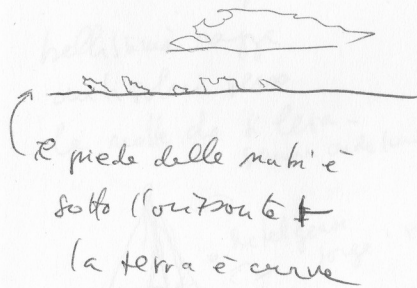 il piede delle nubi è
sotto l'orizzonte
la terra è curva